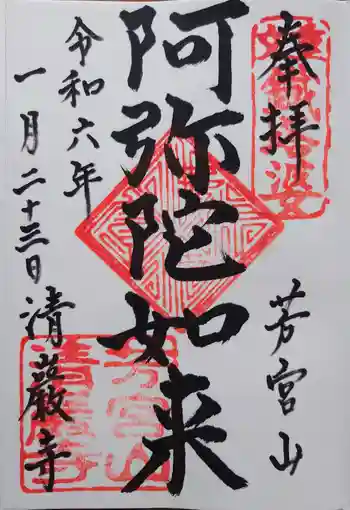 奉拝
芳宮山
阿弥陀如来
令和六年
一月二十三日
清巌寺